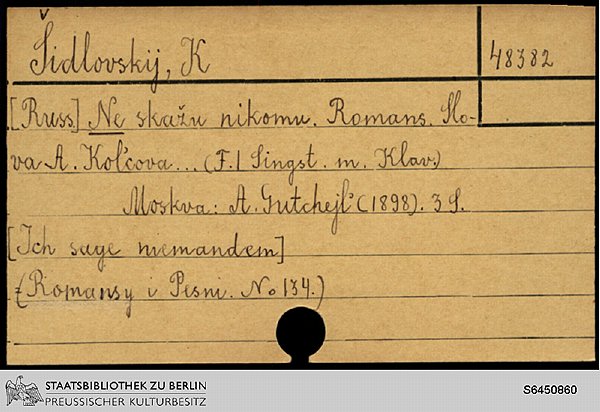 Šidlovskij, K
48382
[Russ] Ne skažu nikomu. Romans. Slo-
va A. Kol'cova... (F. 1 Singst. m. Klav.)
Moskva: A. Gutchejl' (1898). 3 S.
[Ich sage niemandem]
(Romansy i Pesni. No 134.)
STAATSBIBLIOTHEK ZU BERLIN
PREUSSISCHER KULTURBESITZ
S6450860